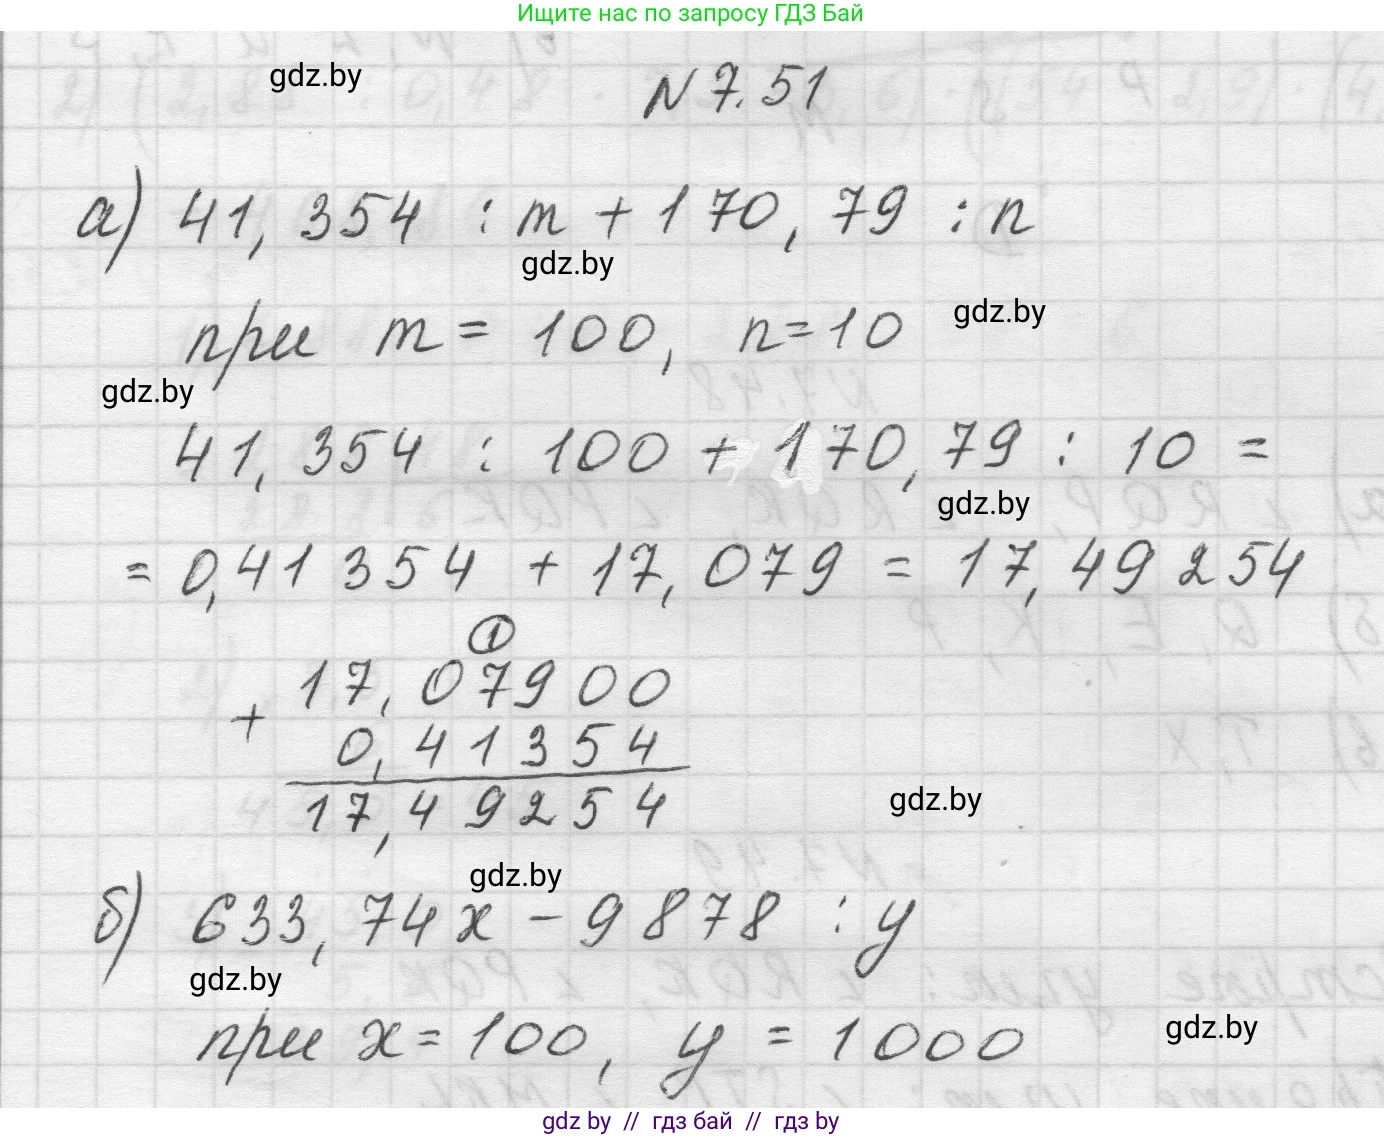 Ищите нас по запросу ГДЗ Бай
gdz.by
N 7.51
а) 41,354 : m + 170,79 : n
gdz.by
при m = 100, n = 10
gdz.by
gdz.by
41,354 : 100 + 170,79 : 10 =
gdz.by
= 0,41354 + 17,079 = 17,49254
1
17,07900
+
0,41354
17,49254
gdz.by
gdz.by
б) 633,74x - 9878 : y
gdz.by
при x = 100, y = 1000
gdz.by
gdz by // гдз бай // гдз by